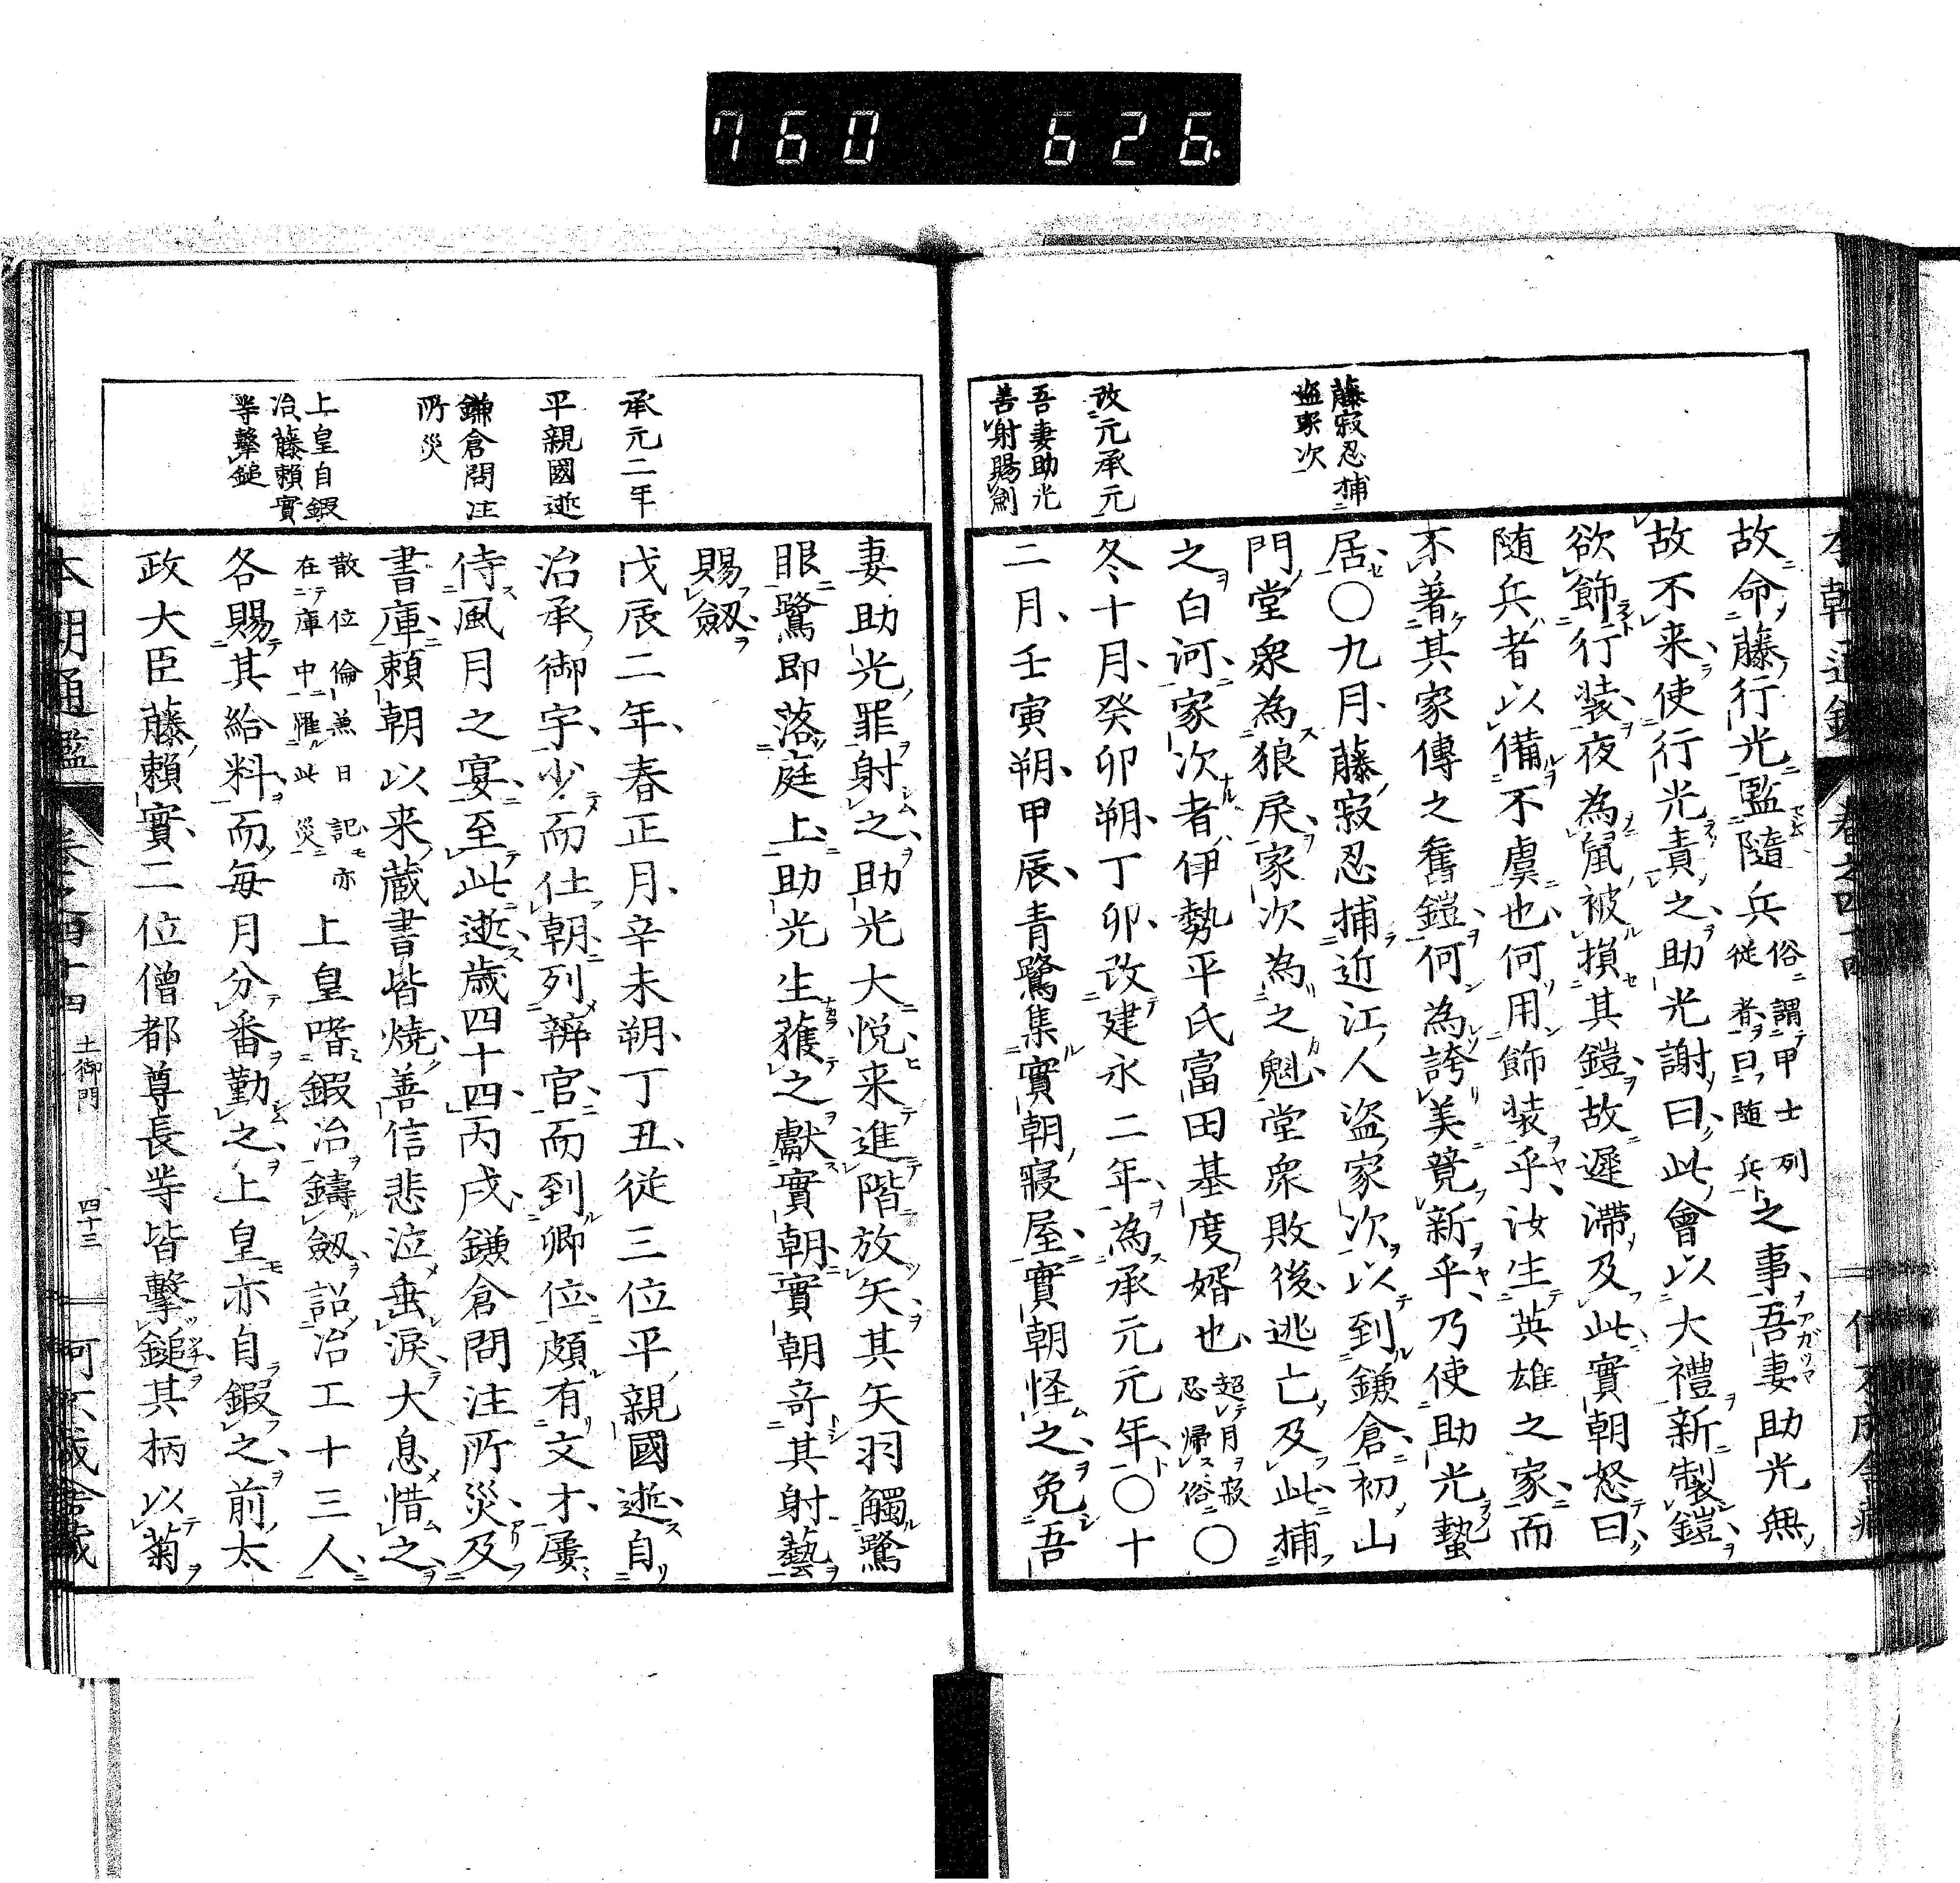 760 626.
藤寂忍捕
盗家次
改元承元
吾妻助光
善射賜劍
故命藤行光監隨兵俗謂甲士列
從者曰随兵之事吾妻助光無
故不来使行光責之助光謝曰此會以大禮新製鎧
欲飾行装夜為鼠被損其鎧故遲滯及此實朝怒曰
随兵者以備不虞也何用飾装乎汝生英雄之家而
不著其家傳之舊鎧何為誇美覓新乎乃使助光蟄
居〇九月藤寂忍捕近江人盗家次以到鎌倉初山
門堂衆為狼戻家次為之魁堂衆敗後逃亡及此捕
之白河家次者伊勢平氏富田基度婿也超月寂
忍歸俗〇
冬十月癸卯朔丁卯改建永二年為承元元年〇十
二月壬寅朔甲辰青鷺集實朝寢屋實朝怪之免吾
承元二年
平親國逝
鎌倉問注
所災
上皇自鍜
冶藤賴實
等擊鎚
妻助光罪射之助光大悦来進階放矢其矢羽觸鷺
眼鷺即落庭上助光生獲之獻實朝實朝奇其射藝
賜劔
戊辰二年春正月辛未朔丁丑從三位平親國逝自
治承御宇少而仕朝列辨官而到卿位頗有文才屢
侍風月之宴至此逝歳四十四丙戌鎌倉問注所災及
書庫賴朝以来蔵書皆燒善信悲泣垂淚大息惜之
散位倫兼日記亦
在庫中罹此災上皇嗜鍜冶鑄劔詔冶工十三人
各賜其給料而毎月分番勤之上皇亦自鍜之前太
政大臣藤賴實二位僧都尊長等皆擊鎚其柄以菊
本朝通鑑 卷之四十四 土御門 四十三